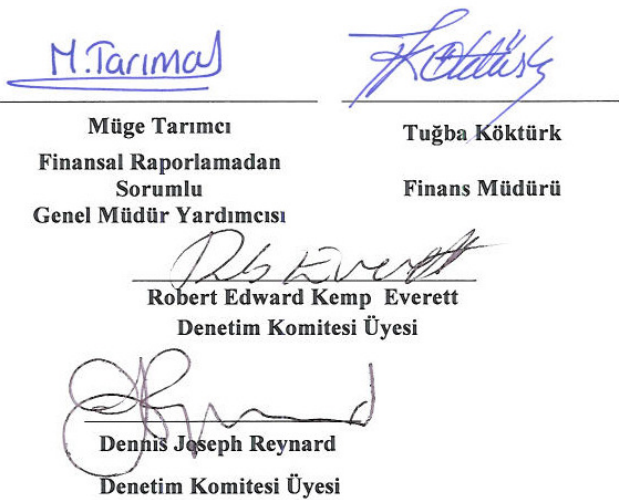 M.Tarımcı
Müge Tarımcı
Finansal Raporlamadan
Sorumlu
Genel Müdür Yardımcısı
Tuğba Köktürk
Finans Müdürü
Robert Edward Kemp Everett
Denetim Komitesi Üyesi
Dennis Joseph Reynard
Denetim Komitesi Üyesi